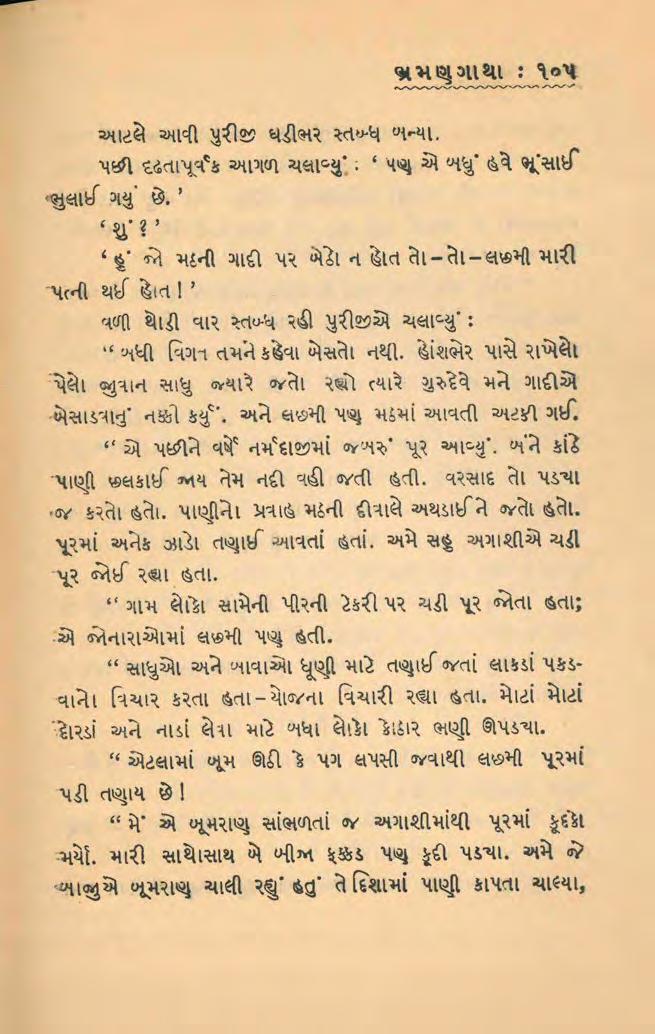 ભ્રમણગાથા : ૧૦૫
આટલે આવી પુરીજી ઘડીભર સ્તબ્ધ બન્યા.
પછી દૃઢતાપૂર્વક આગળ ચલાવ્યું : ‘ પણ એ બધું હવે ભૂંસાઈ
ભુલાઈ ગયું છે. ’
‘ શું ? ’
‘ હું જો મઠની ગાદી પર બેઠો ન હોત તો – તો – લછમી મારી
પત્ની થઈ હોત ! ’
વળી થોડી વાર સ્તબ્ધ રહી પુરીજીએ ચલાવ્યું :
“ બધી વિગત તમને કહેવા બેસતો નથી. હોંશભેર પાસે રાખેલો
પેલો જુવાન સાધુ જ્યારે જતો રહ્યો ત્યારે ગુરુદેવે મને ગાદીએ
બેસાડવાનું નક્કી કર્યું. અને લછમી પણ મઠમાં આવતી અટકી ગઈ.
“ એ પછીને વર્ષે નર્મદાજીમાં જબરું પૂર આવ્યું. બંને કાંઠે
પાણી છલકાઈ જાય તેમ નદી વહી જતી હતી. વરસાદ તો પડ્યા
જ કરતો હતો. પાણીનો પ્રવાહ મઠની દીવાલે અથડાઈને જતો હતો.
પૂરમાં અનેક ઝાડો તણાઈ આવતાં હતાં. અમે સહુ અગાશીએ ચડી
પૂર જોઈ રહ્યા હતા.
“ ગામ લોકો સામેની પીરની ટેકરી પર ચડી પૂર જોતા હતા;
એ જોનારાઓમાં લછમી પણ હતી.
“ સાધુઓ અને બાવાઓ ધૂણી માટે તણાઈ જતાં લાકડાં પકડ-
વાનો વિચાર કરતા હતા – યોજના વિચારી રહ્યા હતા. મોટાં મોટાં
દોરડાં અને નાડાં લેવા માટે બધા લોકો કોઠાર ભણી ઊપડ્યા.
“ એટલામાં બૂમ ઊઠી કે પગ લપસી જવાથી લછમી પૂરમાં
પડી તણાય છે !
“ મેં એ બૂમરાણ સાંભળતાં જ અગાશીમાંથી પૂરમાં કૂદકો
માર્યો. મારી સાથોસાથ બે બીજા ફક્કડ પણ કૂદી પડ્યા. અમે જે
બાજુએ બૂમરાણ ચાલી રહ્યું હતું તે દિશામાં પાણી કાપતા ચાલ્યા,